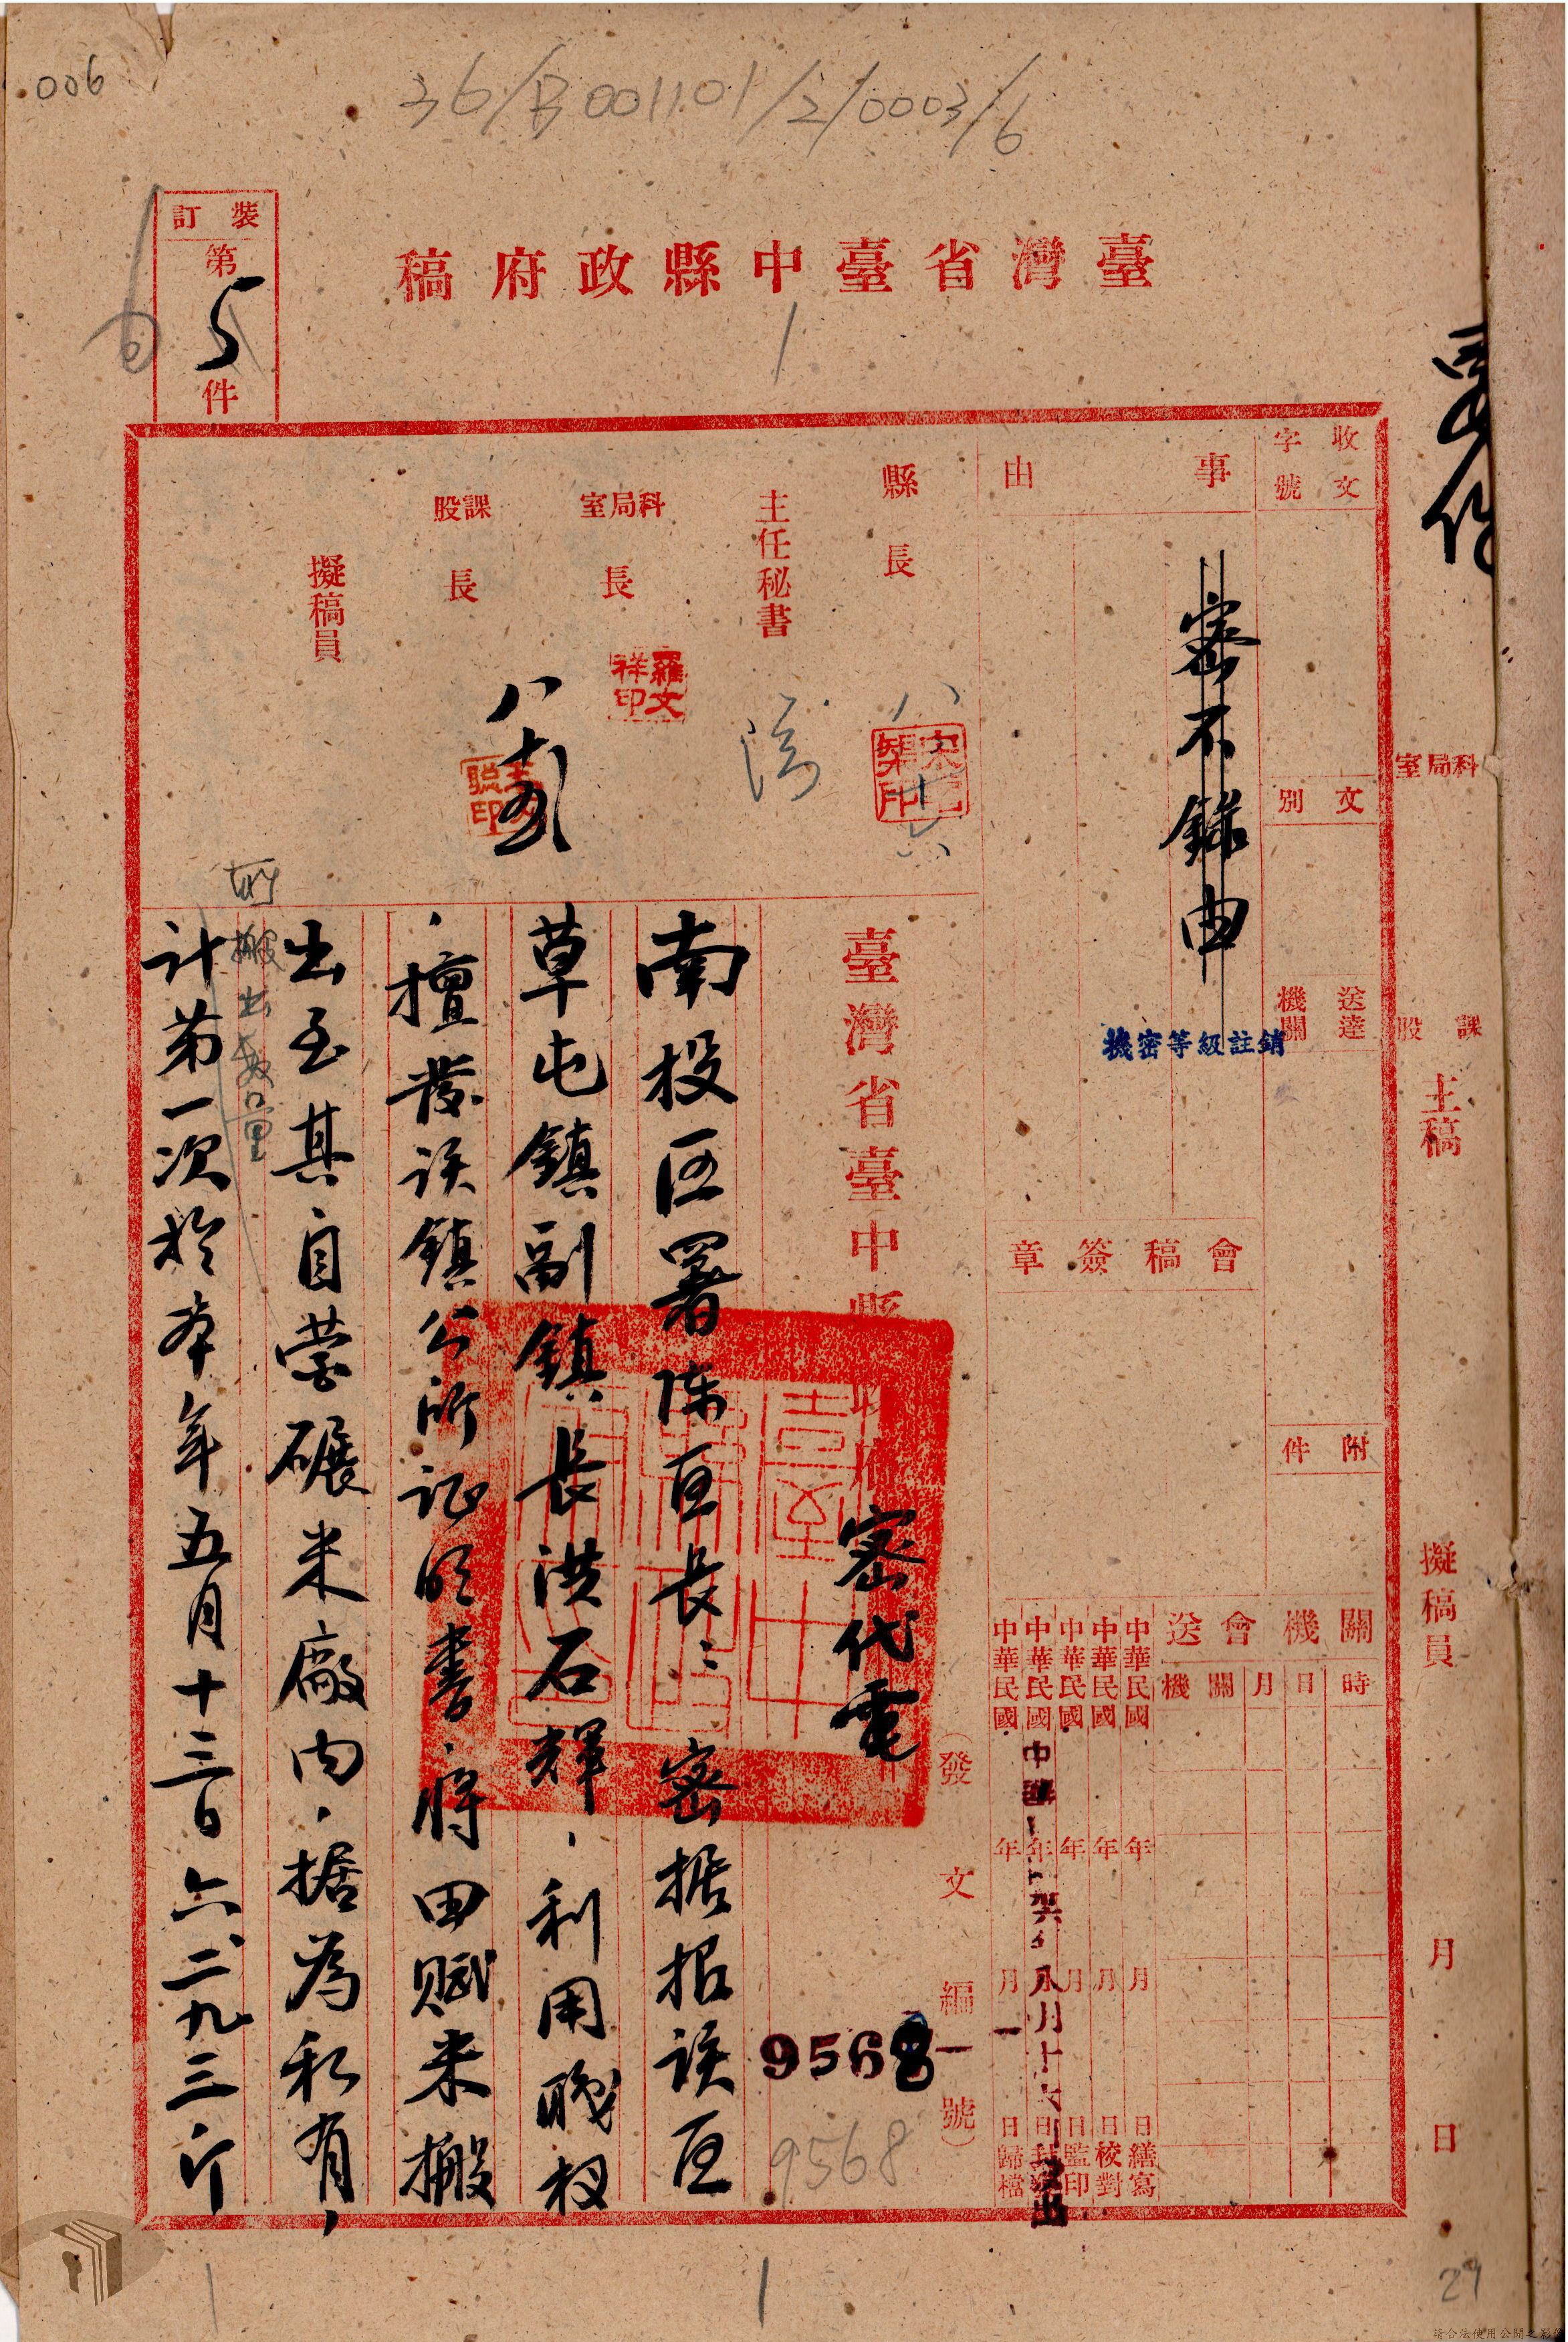 006
36/B001101/2/0003/6
裝訂
第
5
件
6
臺灣省臺中縣政府稿
收文
字號
文別
送達
機關
附件
事由
密不錄由
機密等級註銷
會稿簽章
關機會送
時
日
月
關機
中華民國 年 月 日繕寫
中華民國 年 月 日校對
中華民國 年 月 日監印
中華民國 年 月 日封發
中華民國 年 月 日歸檔
縣長
主任秘書
科局室
長
羅文祥印
課股
長
八
擬稿員
臺灣省臺中縣政府
密代電
(發文編號)
9568
9568
南投區署陳區長:密據报該區
草屯鎮副鎮長洪石輝,利用職权
,擅發該鎮公所证明書,將田賦米搬
出至其自营碾米廠內,据為私有,
所搬出數量
計第一次於本年五月十三日六、二九三斤
科局室
課股
主稿
擬稿員
月
日
29
請合法使用公開之影像